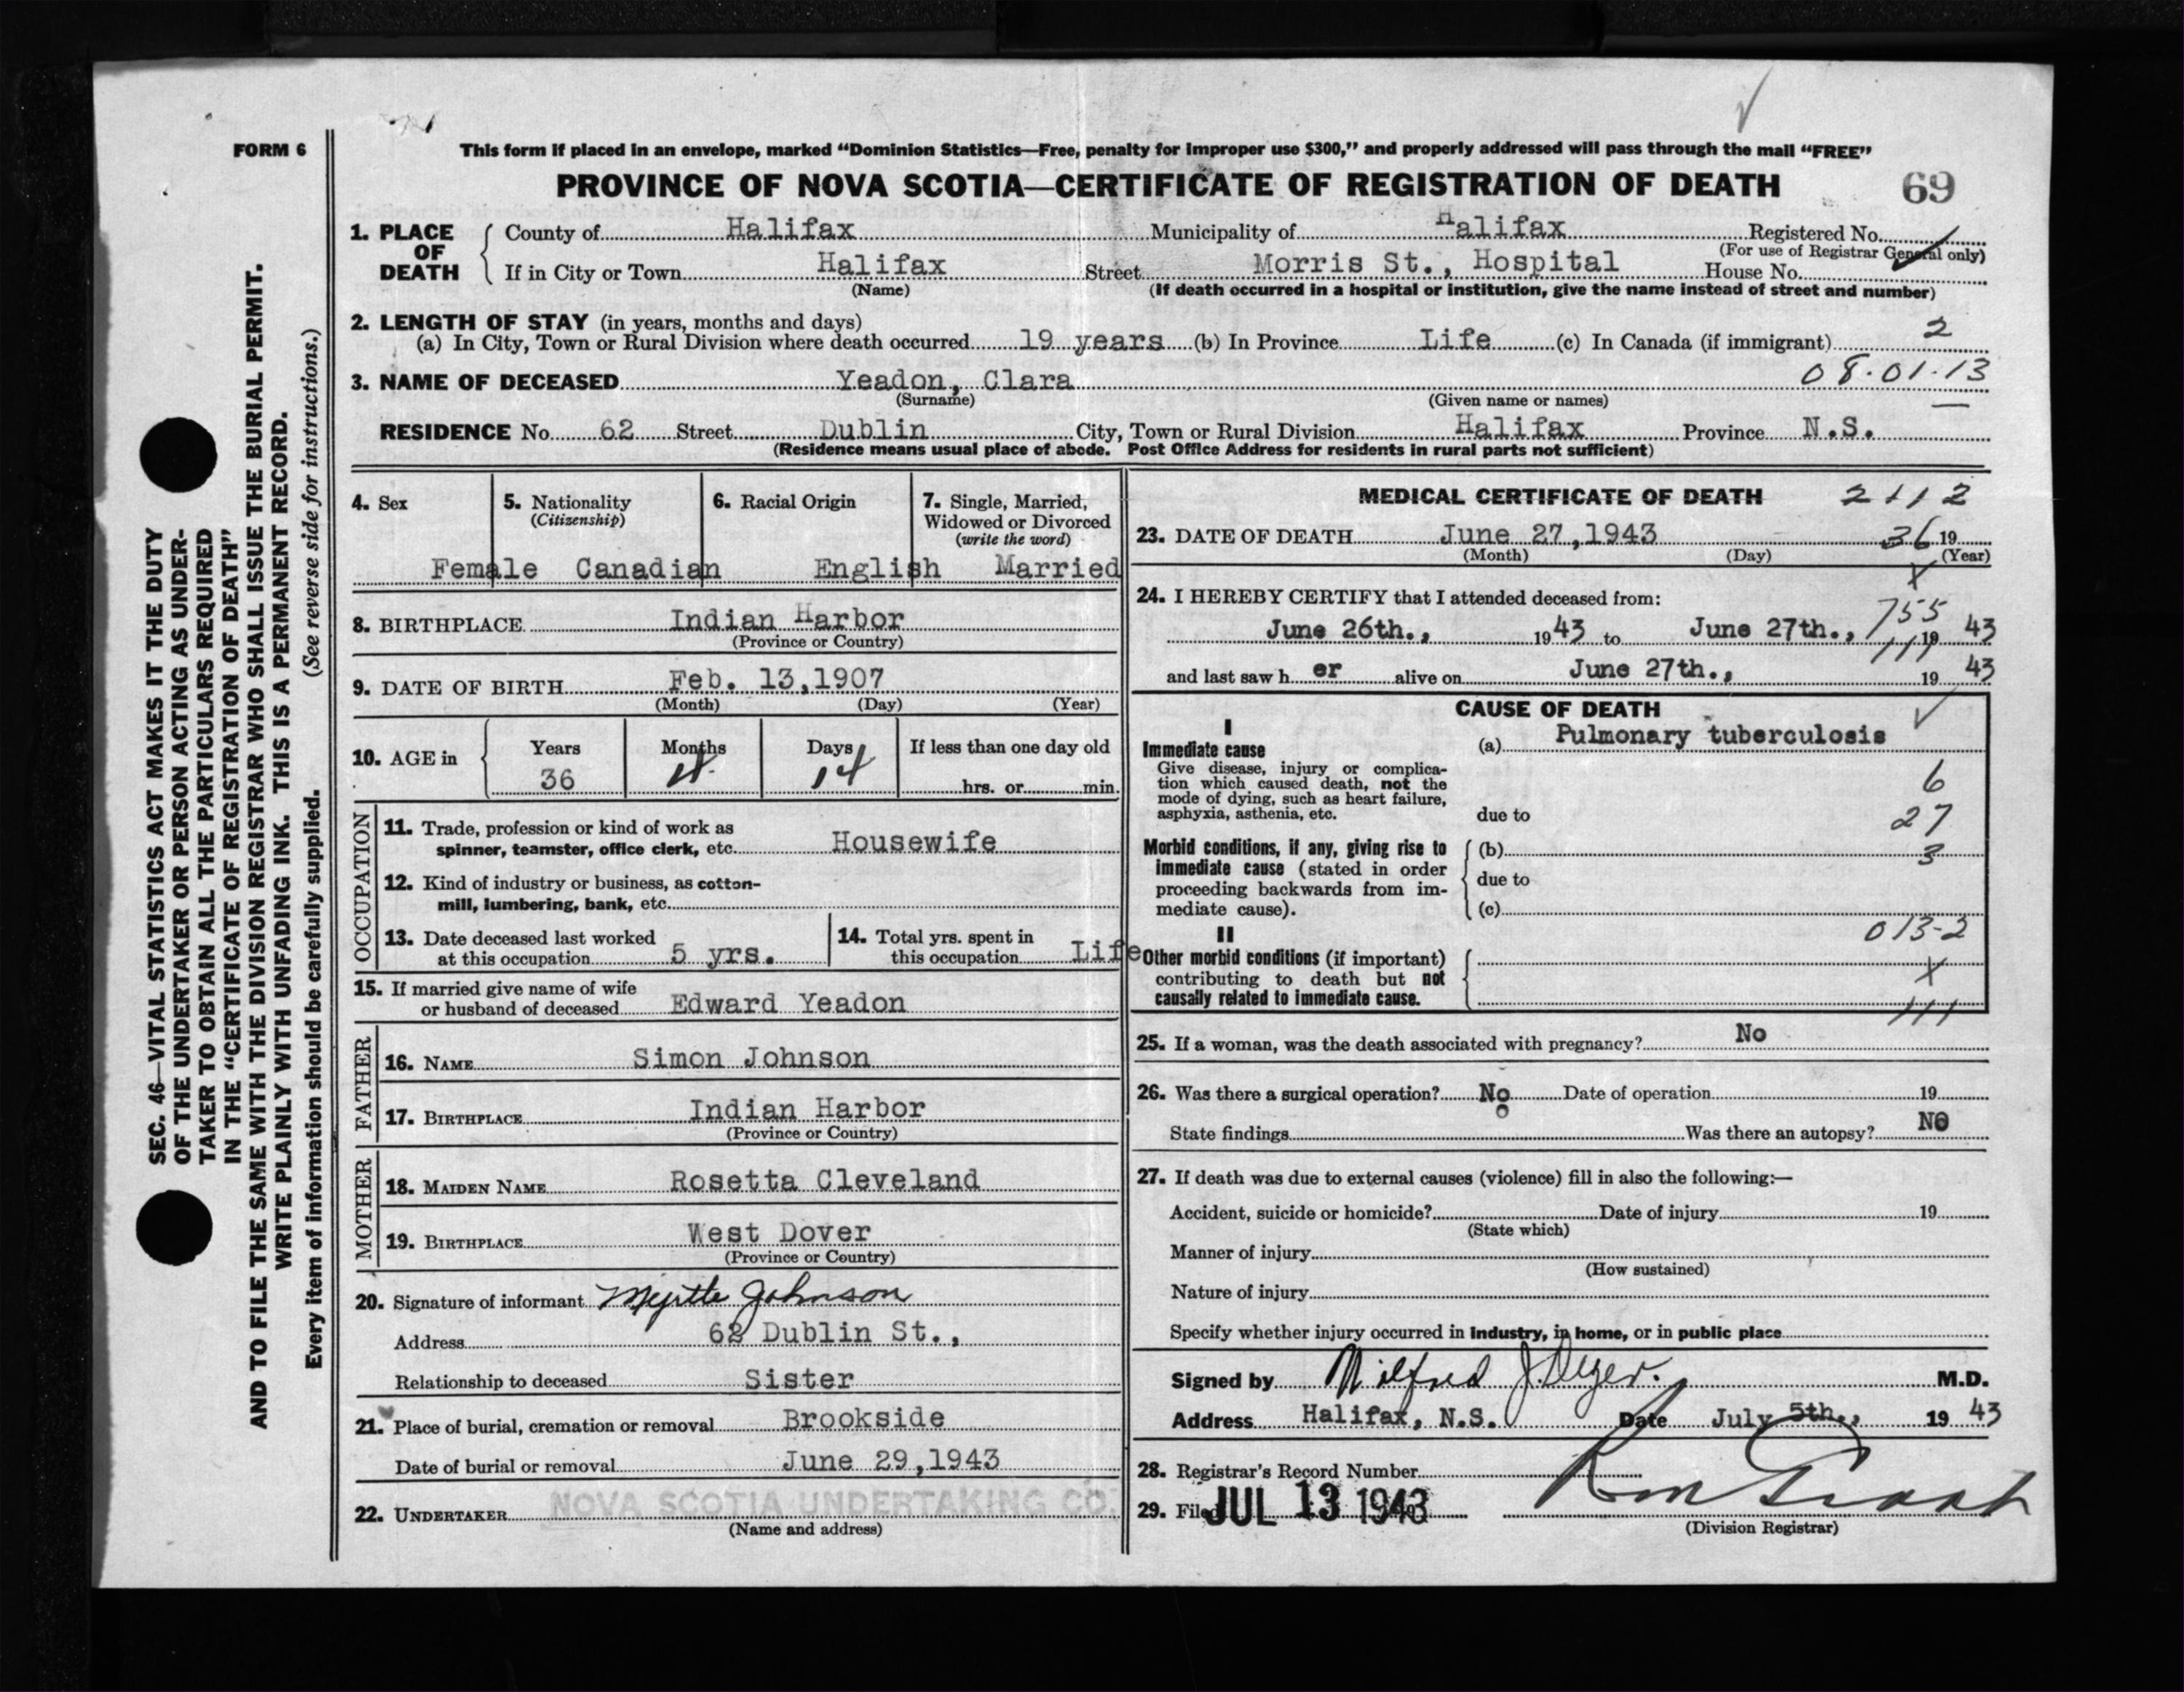 FORM 6
This form if placed in an envelope, marked "Dominion Statistics—Free, penalty for improper use $300," and properly addressed will pass through the mail "FREE"
PROVINCE OF NOVA SCOTIA—CERTIFICATE OF REGISTRATION OF DEATH 69
1. PLACE OF DEATH County of Halifax Municipality of Halifax Registered No.
(For use of Registrar General only)
If in City or Town Halifax Street Morris St., Hospital House No.
(Name) (If death occurred in a hospital or institution, give the name instead of street and number)
2. LENGTH OF STAY (in years, months and days)
(a) In City, Town or Rural Division where death occurred 19 years (b) In Province Life (c) In Canada (if immigrant) 2
3. NAME OF DECEASED Yeadon, Clara 08.01.13
(Surname) (Given name or names)
RESIDENCE No. 62 Street Dublin City, Town or Rural Division Halifax Province N.S.
(Residence means usual place of abode. Post Office Address for residents in rural parts not sufficient)
4. Sex 5. Nationality (Citizenship) 6. Racial Origin 7. Single, Married, Widowed or Divorced (write the word)
Female Canadian English Married
8. BIRTHPLACE Indian Harbor
(Province or Country)
9. DATE OF BIRTH Feb. 13,1907
(Month) (Day) (Year)
10. AGE in Years Months Days If less than one day old
36 14 hrs. or min.
OCCUPATION
11. Trade, profession or kind of work as
spinner, teamster, office clerk, etc. Housewife
12. Kind of industry or business, as cotton-
mill, lumbering, bank, etc.
13. Date deceased last worked
at this occupation 5 yrs.
14. Total yrs. spent in
this occupation Life
15. If married give name of wife
or husband of deceased Edward Yeadon
FATHER
16. NAME Simon Johnson
17. BIRTHPLACE Indian Harbor
(Province or Country)
MOTHER
18. MAIDEN NAME Rosetta Cleveland
19. BIRTHPLACE West Dover
(Province or Country)
20. Signature of informant Myrtle Johnson
Address 62 Dublin St.,
Relationship to deceased Sister
21. Place of burial, cremation or removal Brookside
Date of burial or removal June 29,1943
22. UNDERTAKER NOVA SCOTIA UNDERTAKING CO.
(Name and address)
MEDICAL CERTIFICATE OF DEATH 2112
23. DATE OF DEATH June 27,1943 36 19
(Month) (Day) (Year)
X
24. I HEREBY CERTIFY that I attended deceased from:
755
June 26th., 1943 to June 27th., 19 43
111
and last saw h er alive on June 27th., 19 43
CAUSE OF DEATH
I
Immediate cause (a) Pulmonary tuberculosis
Give disease, injury or complica-
tion which caused death, not the
mode of dying, such as heart failure,
asphyxia, asthenia, etc. due to
6
27
3
Morbid conditions, if any, giving rise to
immediate cause (stated in order
proceeding backwards from im-
mediate cause).
(b)
due to
(c)
013-2
II
Other morbid conditions (if important)
contributing to death but not
causally related to immediate cause.
X
111
25. If a woman, was the death associated with pregnancy? No
26. Was there a surgical operation? No Date of operation 19
State findings Was there an autopsy? No
27. If death was due to external causes (violence) fill in also the following:—
Accident, suicide or homicide? Date of injury 19
(State which)
Manner of injury
(How sustained)
Nature of injury
Specify whether injury occurred in industry, in home, or in public place
Signed by Wilfred J. Dyer. M.D.
Address Halifax, N.S. Date July 5th., 19 43
28. Registrar's Record Number
29. Filed JUL 13 1943
(Division Registrar)
SEC. 46—VITAL STATISTICS ACT MAKES IT THE DUTY
OF THE UNDERTAKER OR PERSON ACTING AS UNDER-
TAKER TO OBTAIN ALL THE PARTICULARS REQUIRED
IN THE "CERTIFICATE OF REGISTRATION OF DEATH"
AND TO FILE THE SAME WITH THE DIVISION REGISTRAR WHO SHALL ISSUE THE BURIAL PERMIT.
WRITE PLAINLY WITH UNFADING INK. THIS IS A PERMANENT RECORD.
Every item of information should be carefully supplied. (See reverse side for instructions.)